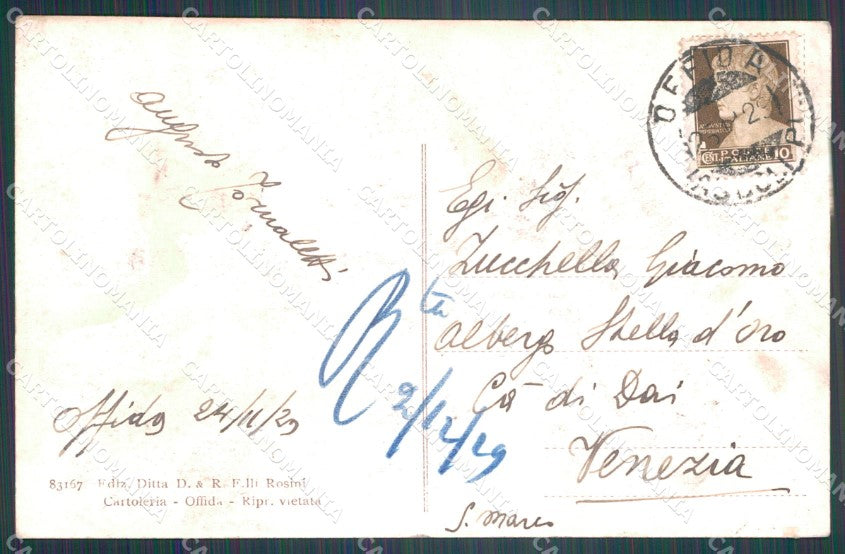 OFFIDA
(ASCOLI P.)
POSTE
ITALIANE
CENT. 10
Augusto
Egr Sig.
Zucchella Giacomo
Albergo Stella d'oro
Cà di Dai
Venezia
S. Marco
Rta
2/12/29
Offida 24/11/29
83167 Ediz. Ditta D. & R. F.lli Rosini
Cartoleria - Offida - Ripr. vietata
CARTOLINOMANIA